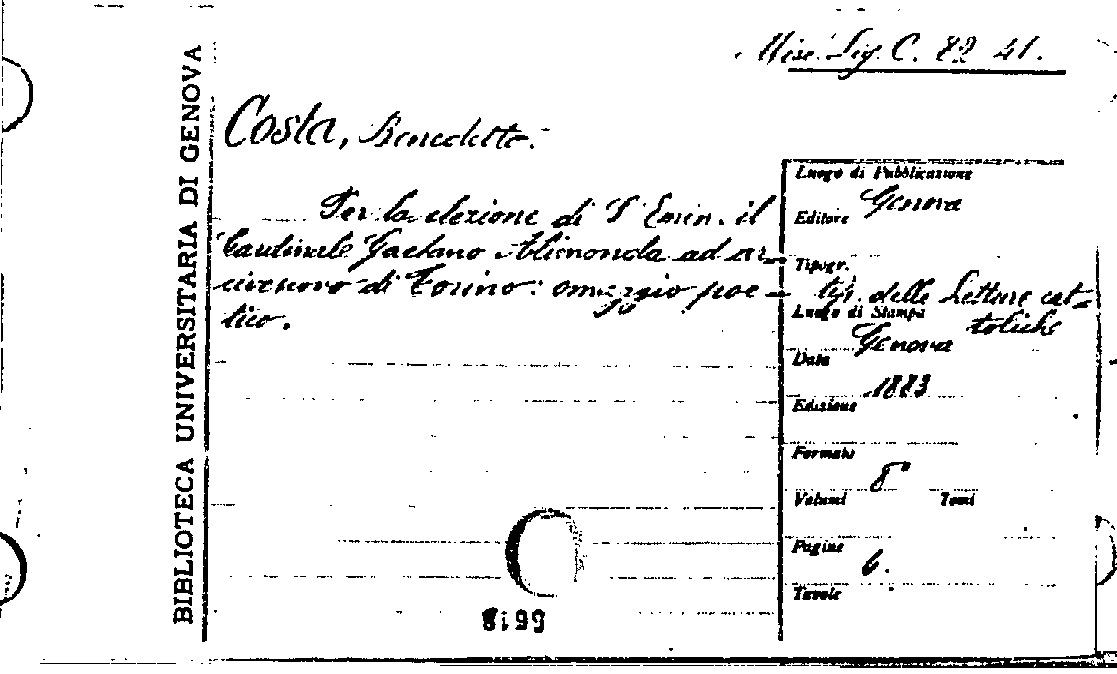 Misc. Lig. C. 82 41.
BIBLIOTECA UNIVERSITARIA DI GENOVA
Costa, Benedetto.
Per la elezione di S Emin. il
Cardinale Gaetano Alimonda ad ar-
civescovo di Torino: omaggio poe-
tico.
Luogo di Pubblicazione
Genova
Editore
Tipogr.
tip. delle Letture cat-
toliche
Luogo di Stampa
Genova
Data
1883
Edizione
Formato
8°
Volumi Tomi
Pagine
6.
Tavole